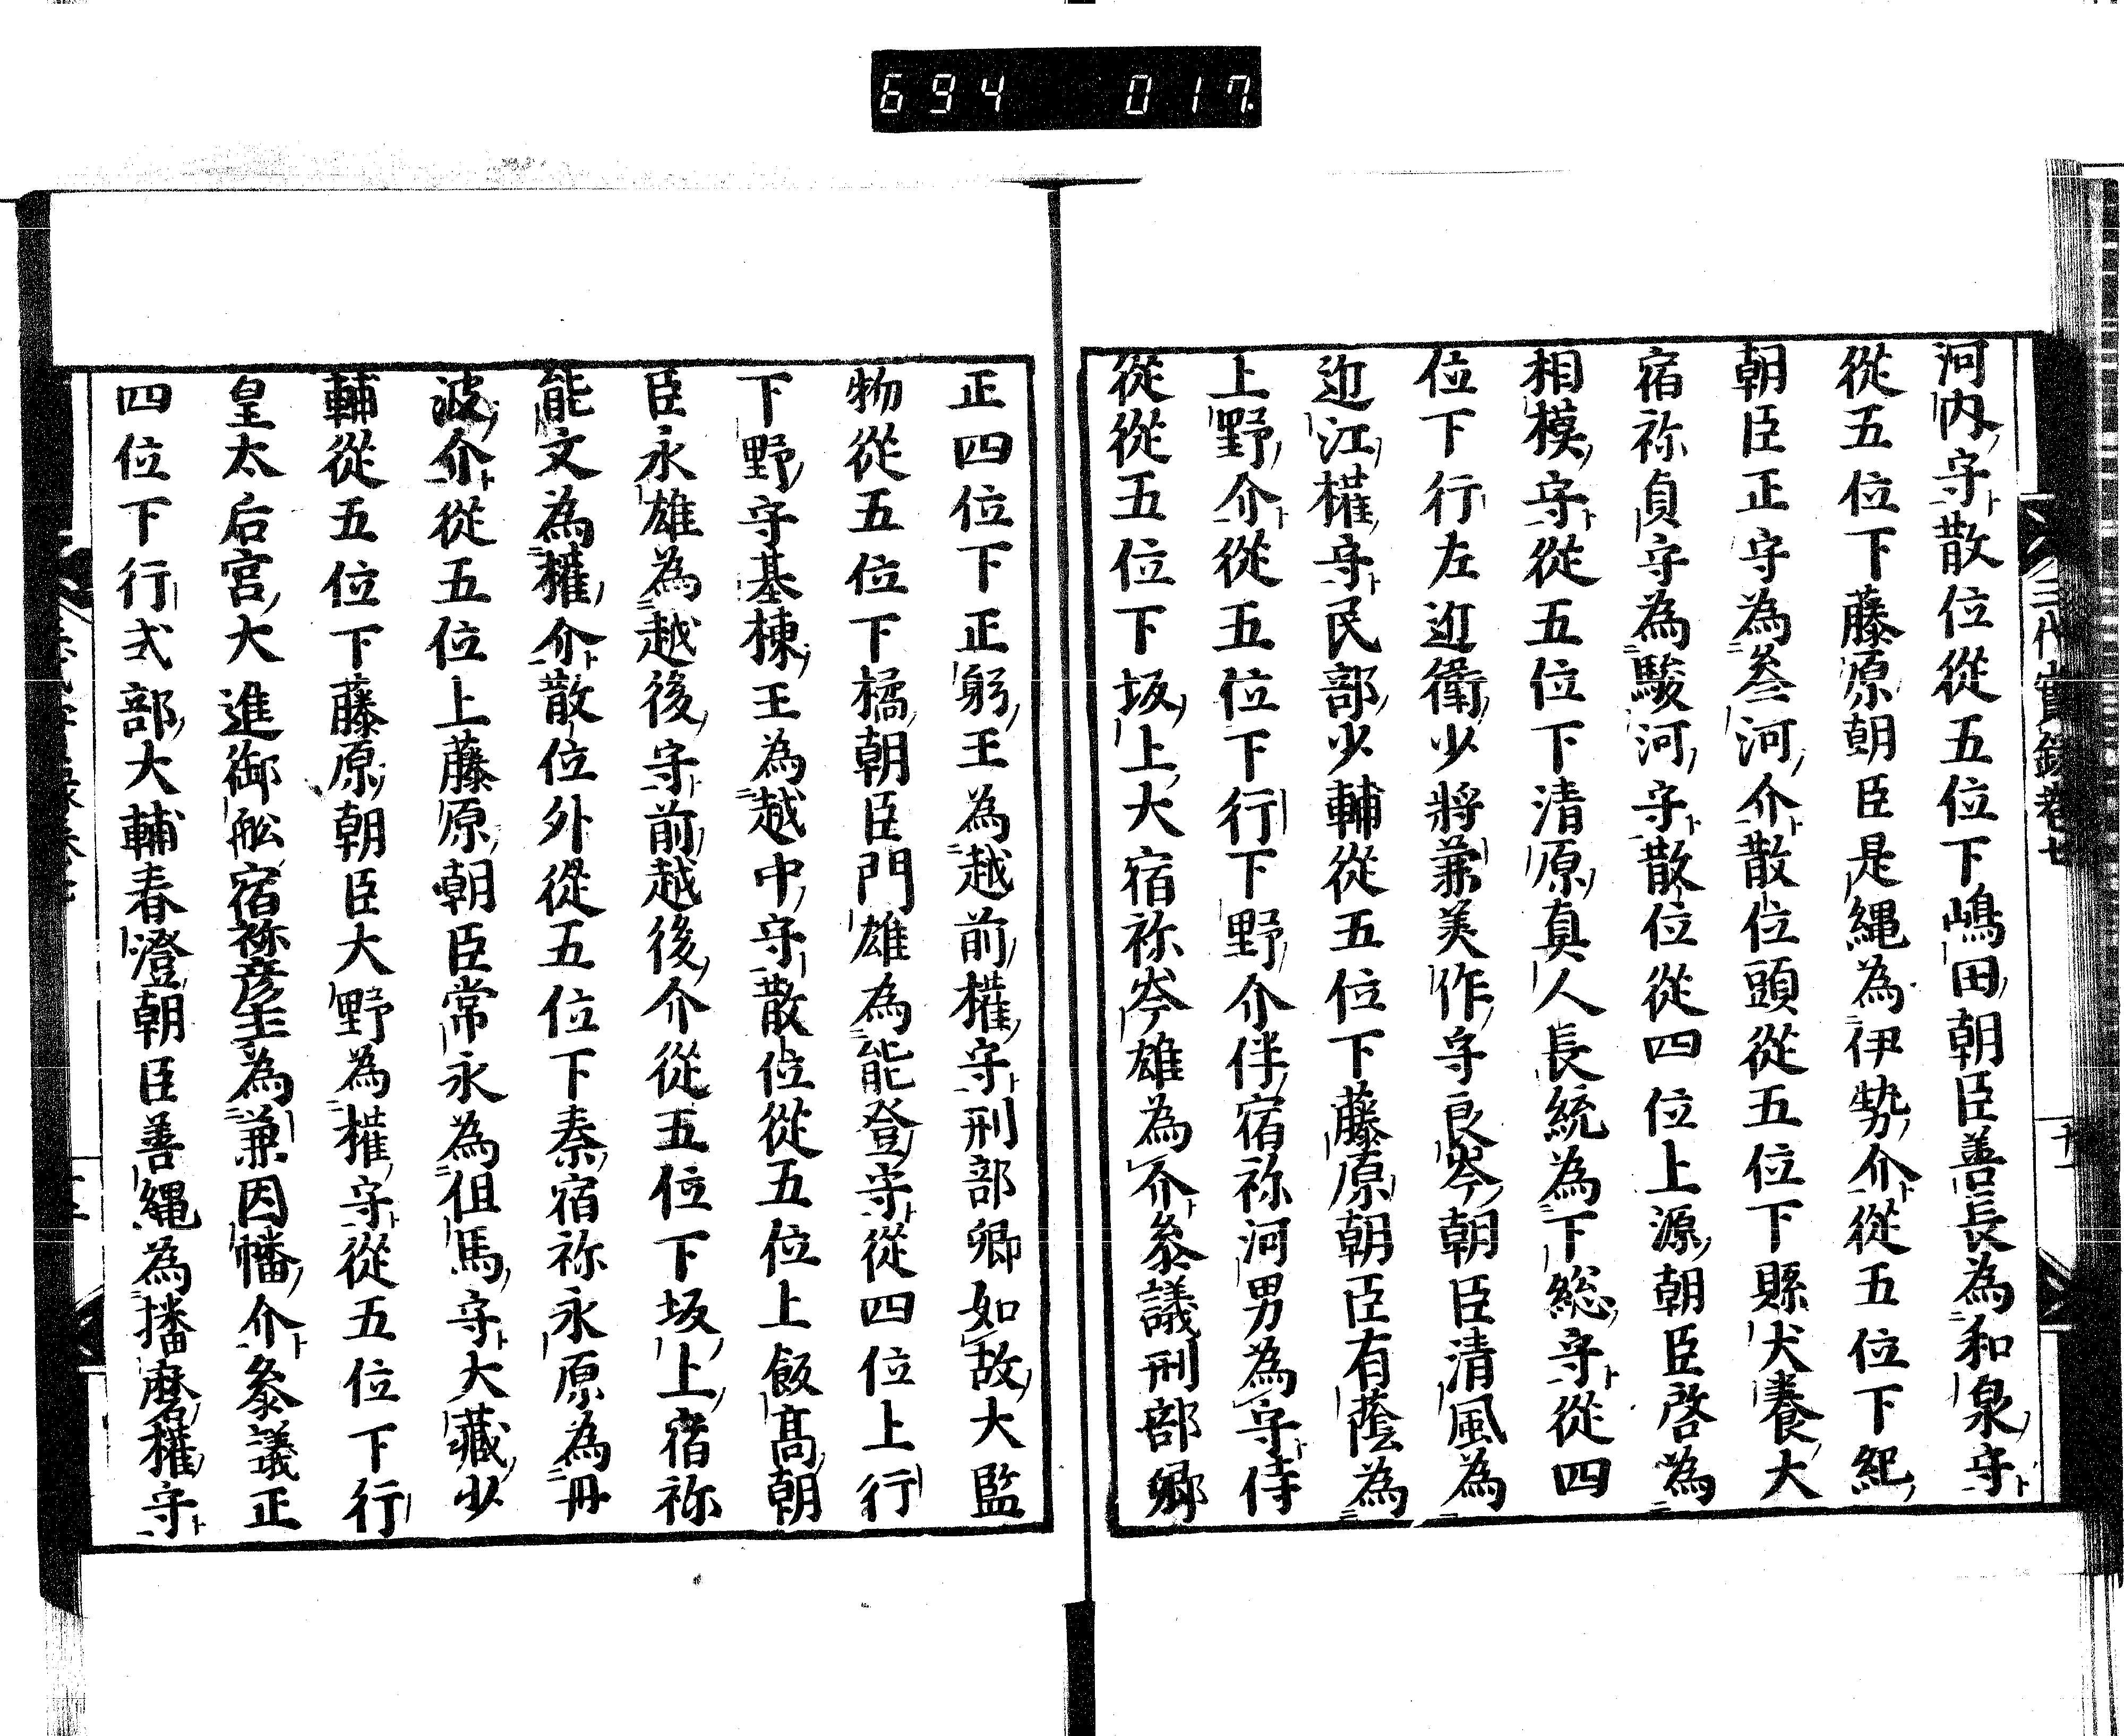 694 017
河内守散位從五位下嶋田朝臣善長為和泉守
從五位下藤原朝臣是縄為伊勢介從五位下紀
朝臣正守為叄河介散位頭從五位下縣犬養大
宿祢貞守為駿河守散位從四位上源朝臣啓為
相模守從五位下清原真人長統為下総守從四
位下行左近衛少將兼美作守良岑朝臣清風為
近江權守民部少輔從五位下藤原朝臣有蔭為
上野介從五位下行下野介伴宿祢河男為守侍
從從五位下坂上大宿祢岑雄為介叅議刑部卿
正四位下正躬王為越前權守刑部卿如故大監
物從五位下橘朝臣門雄為能登守從四位上行
下野守基棟王為越中守散位從五位上飯高朝
臣永雄為越後守前越後介從五位下坂上宿祢
能文為權介散位外從五位下秦宿祢永原為丹
波介從五位上藤原朝臣常永為伹馬守大藏少
輔從五位下藤原朝臣大野為權守從五位下行
皇太后宮大進御舩宿祢彦主為兼因幡介叅議正
四位下行式部大輔春澄朝臣善縄為播磨權守